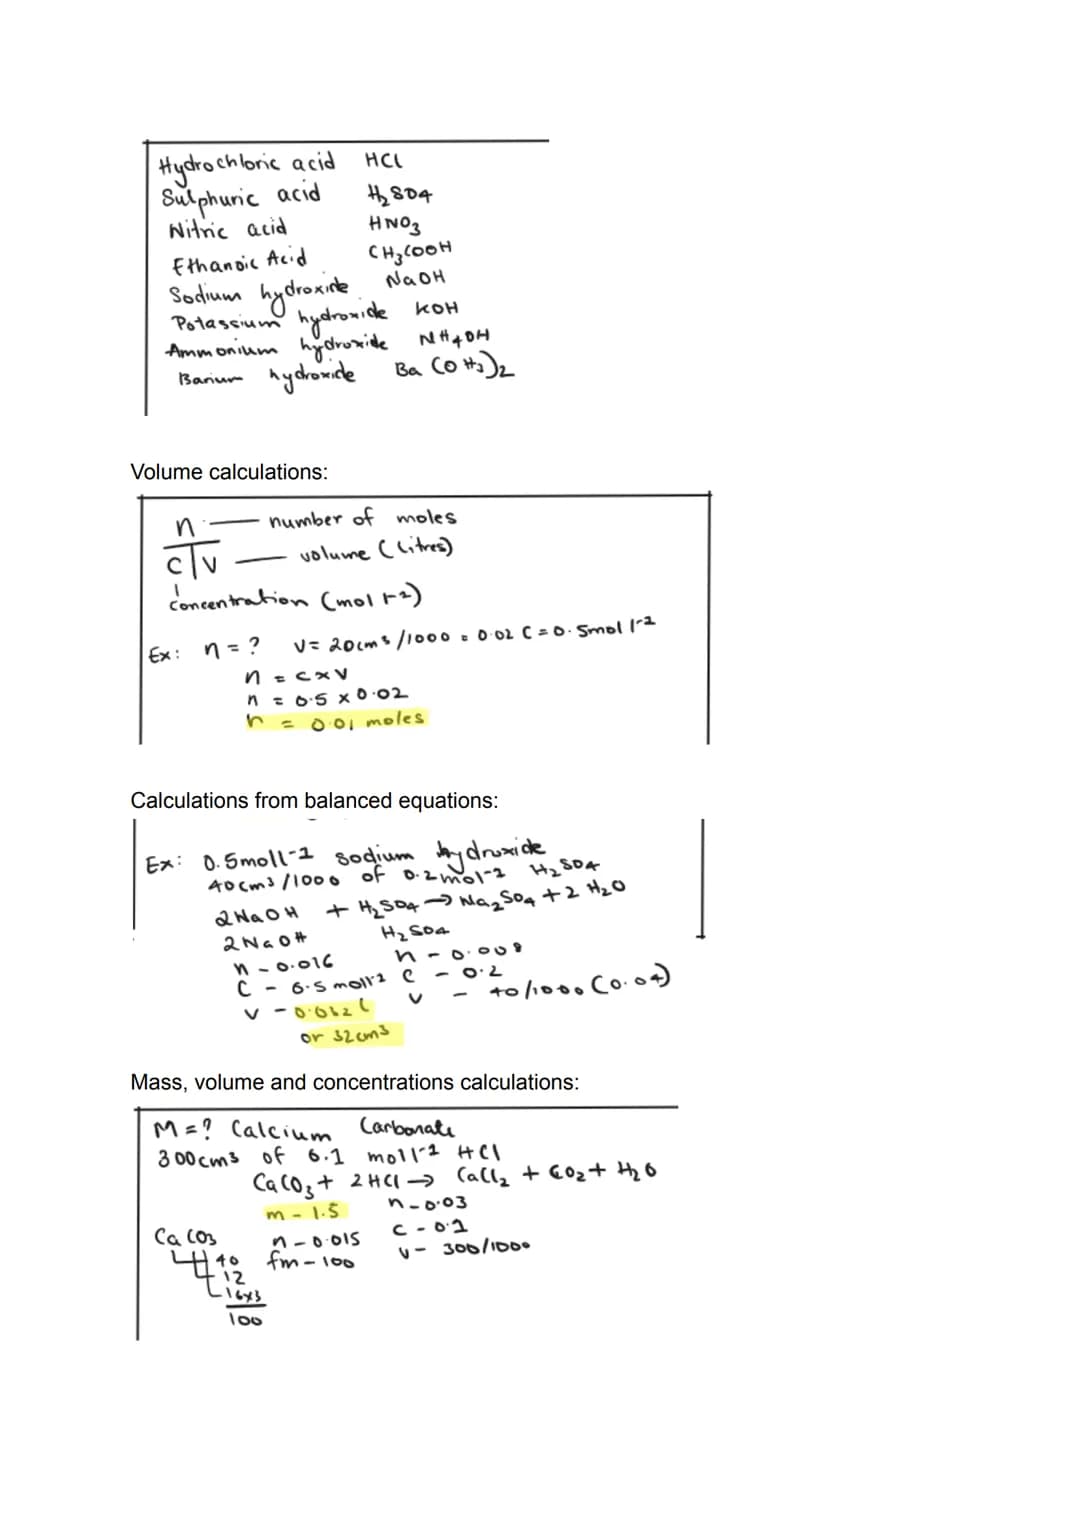 Hydrochloric acid HCl
Sulphuric acid H₂SO4
Nitric acid HNO₃
Ethanoic Acid CH₃COOH
Sodium hydroxide NaOH
Potassium hydroxide KOH
Ammonium hydroxide NH4OH
Barium hydroxide Ba (OH₃)₂
Volume calculations:
n — number of moles
c v — volume (litres)
Concentration (mol l⁻¹)
Ex: n = ? V= 20cm³/1000 = 0.02 C = 0.5mol l⁻¹
n = c×v
n = 0.5 × 0.02
n = 0.01 moles
Calculations from balanced equations:
Ex: 0.5moll⁻¹ sodium hydroxide
40cm³/1000 of 0.2mol⁻¹ H₂SO4
2NaOH + H₂SO4 → Na₂SO4 + 2 H₂O
2NaOH H₂SO4
n - 0.016 n - 0.008
C - 0.5 moll⁻¹ C - 0.2
v - 0.032 l v - 40/1000 (0.04)
or 32cm³
Mass, volume and concentrations calculations:
M = ? Calcium Carbonate
300cm³ of 0.1 moll⁻¹ HCl
CaCO₃ + 2HCl → CaCl₂ + CO₂ + H₂O
m - 1.5 n - 0.03
CaCO₃ n - 0.015 c - 0.1
40 fm - 100 v - 300/1000
12
16x3
100